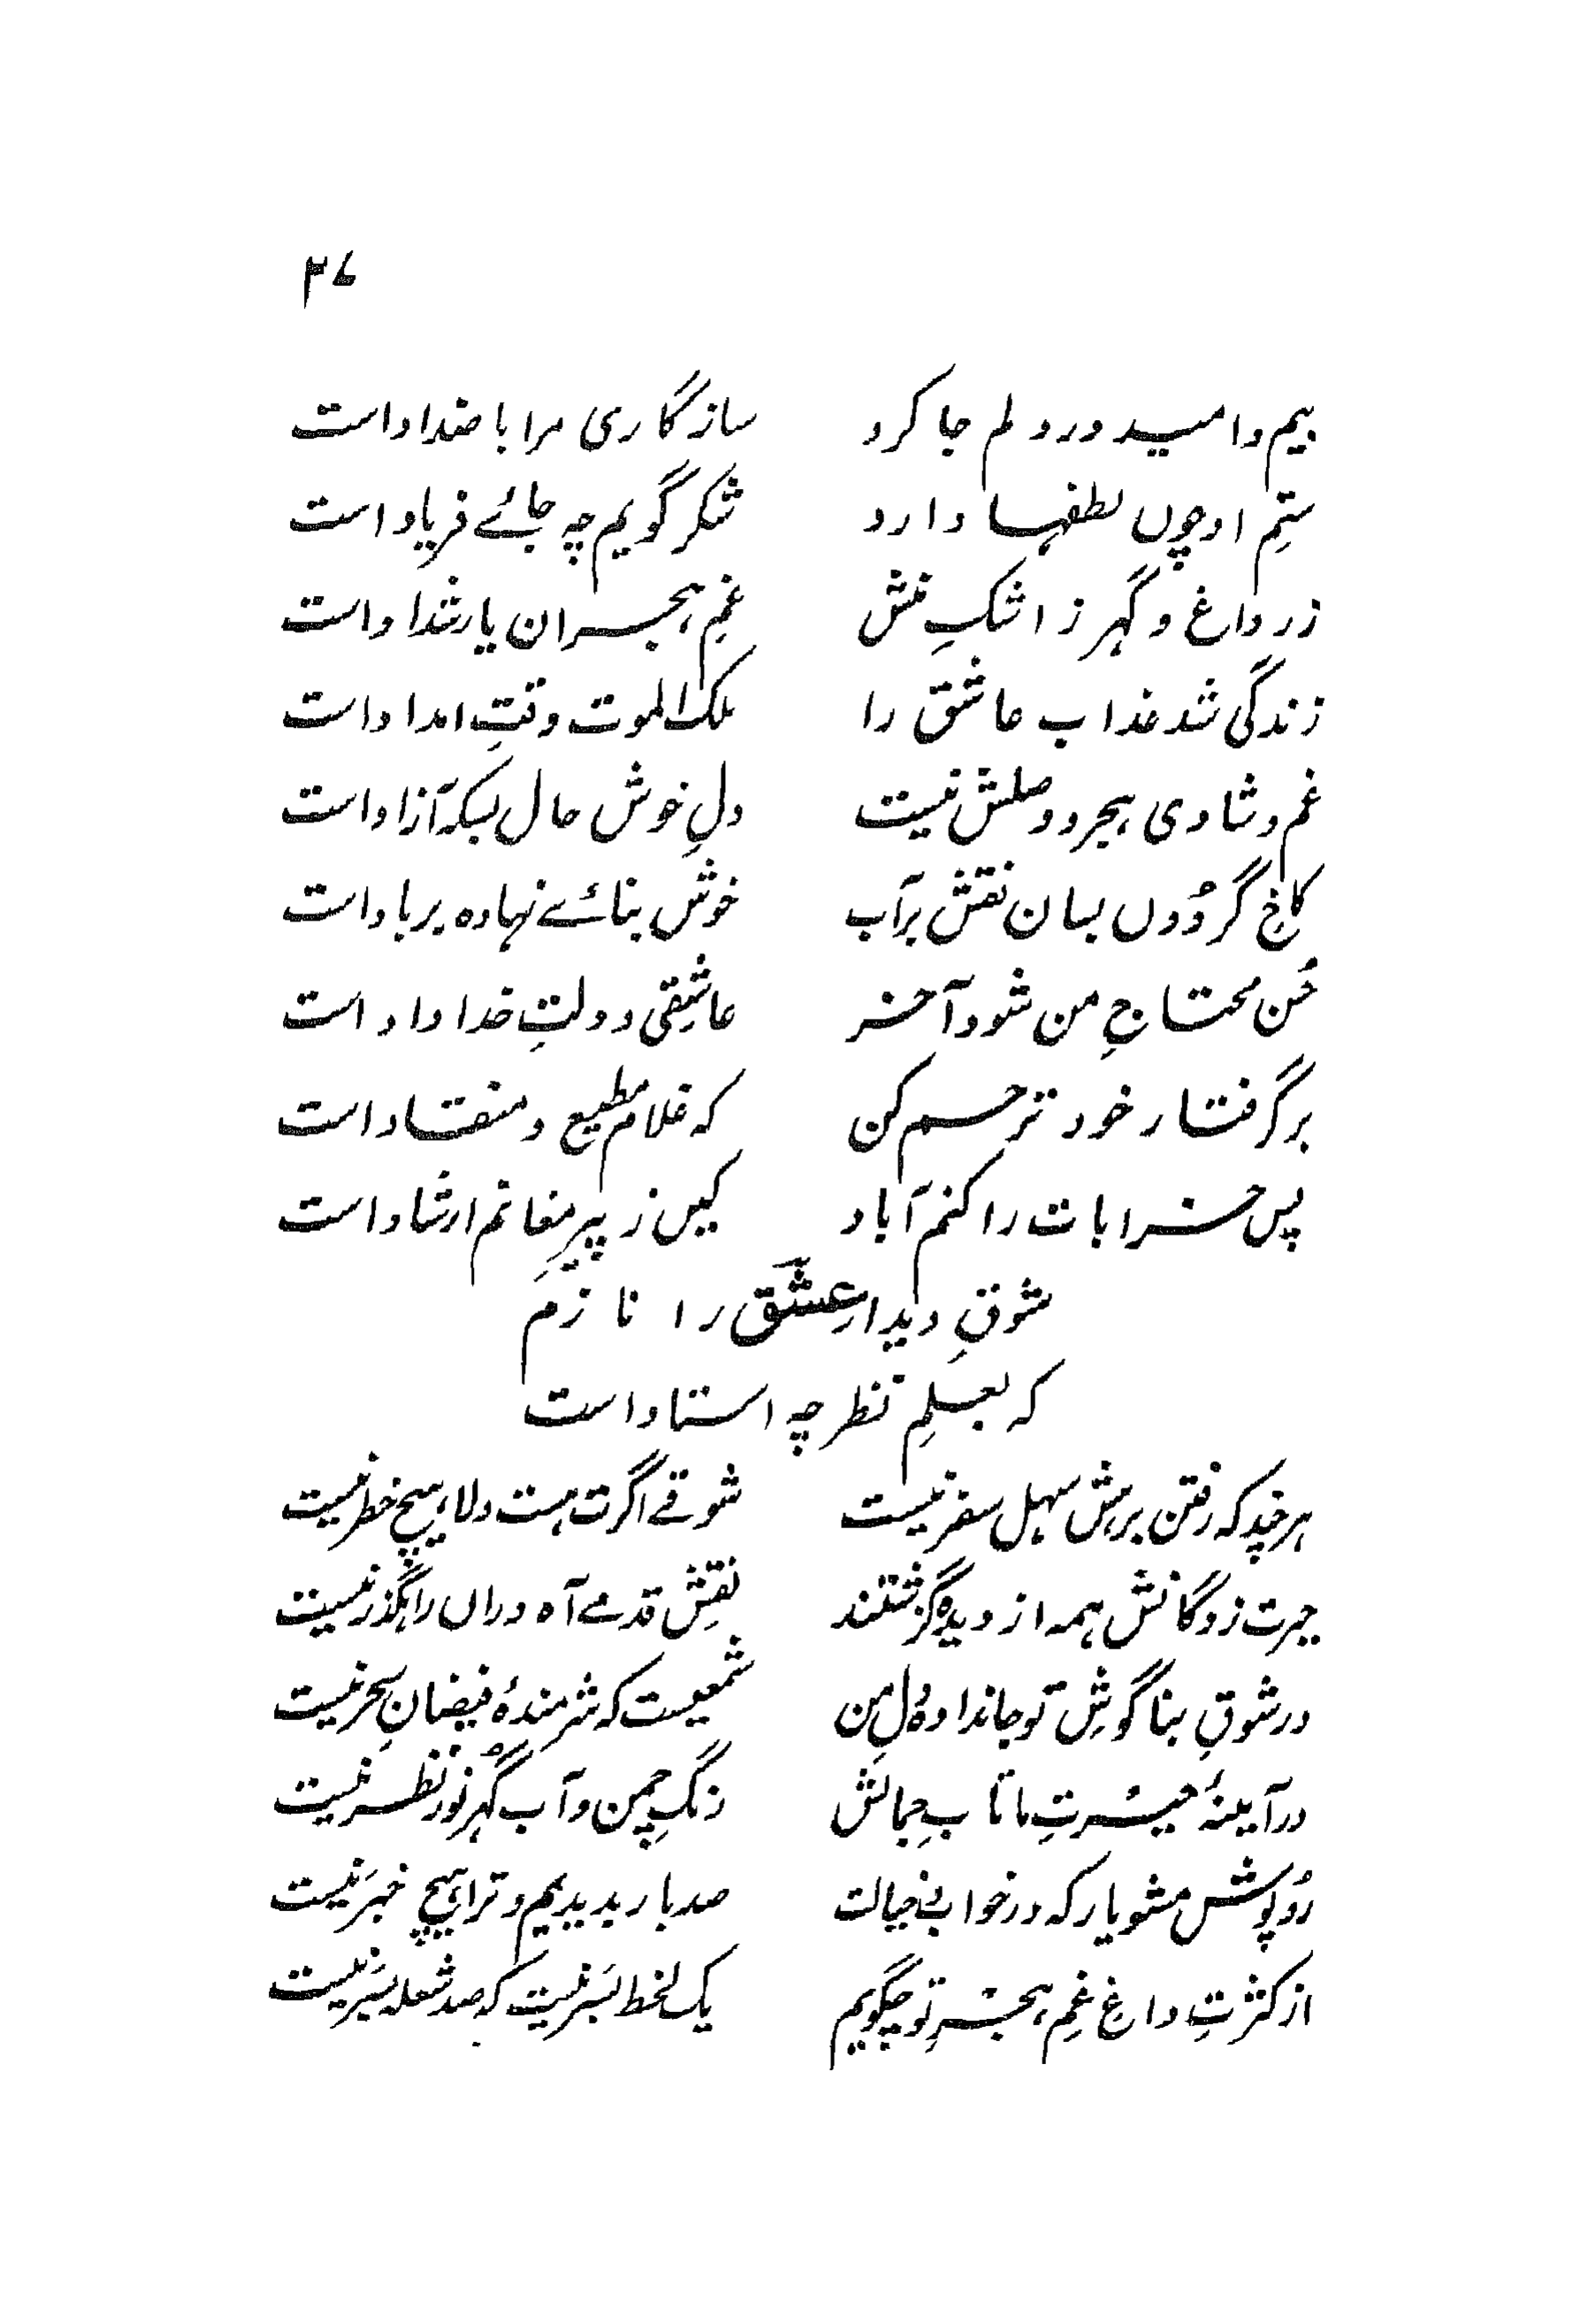 ۳۷
بیم و امید در دلم جا کرد سازگاری مرا باضداد است
ستمِ او چوں لطفہا دارد شکر گویم چہ جائے فریاد است
زر داغ و گہر ز اشکِ غمش غمِ ہجران یار شداد است
زندگی شد عذاب عاشق را ملک الموت وقتِ امداد است
غم و شادی ہجر و وصلش نیست دلِ خوش حال بسکہ آزاد است
کاخِ گردُوں بسان نقش برآب خوش بنائے نہادہ برباد است
حُسن محتاجِ من شود آخر عاشِقی دولتِ خداداد است
بر گرفتار خود ترحم کن کہ غلام مطیع و منقاد است
پس خرابات را کنم آباد کیں ز پیرِ مغانم ارشاد است
شوقِ دیدارِ عشق را نازم
کہ بعلمِ نظر چہ استاد است
ہر چند کہ رفتن برش سہل سفر نیست شوقے اگرت ہست دلا ہیچ خطر نیست
حیرت زدگانش ہمہ از دیدہ گزشتند نقشِ قدمے آہ دراں راہگذر نیست
در شوقِ بناگوشِ تو جاندادہ دلِ من شمعیست کہ شرمندۂ فیضانِ سحر نیست
در آیینۂ حیرتِ ما تابِ جمالش رنگِ چمن و آب گُہر نُور نظر نیست
رُوپوش مشو یار کہ در خواب خیالت صد بار بدیدیم و ترا ہیچ خبر نیست
از کثرتِ داغِ غمِ ہجرِ تو چگویم یک لحظ بسر نیست کہ صد شعلہ بسر نیست